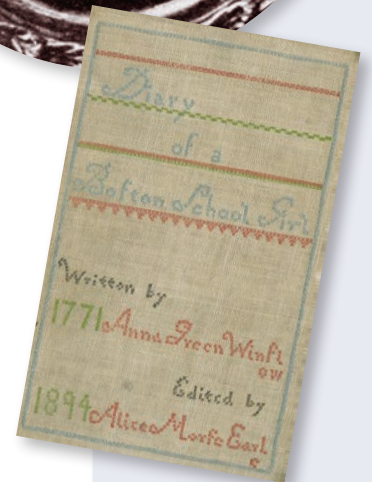 Diary
of a
Boſton School Girl
Written by
1771 Anna Green Winſl
ow
Edited by
1894 Alice Morſe Earl
e